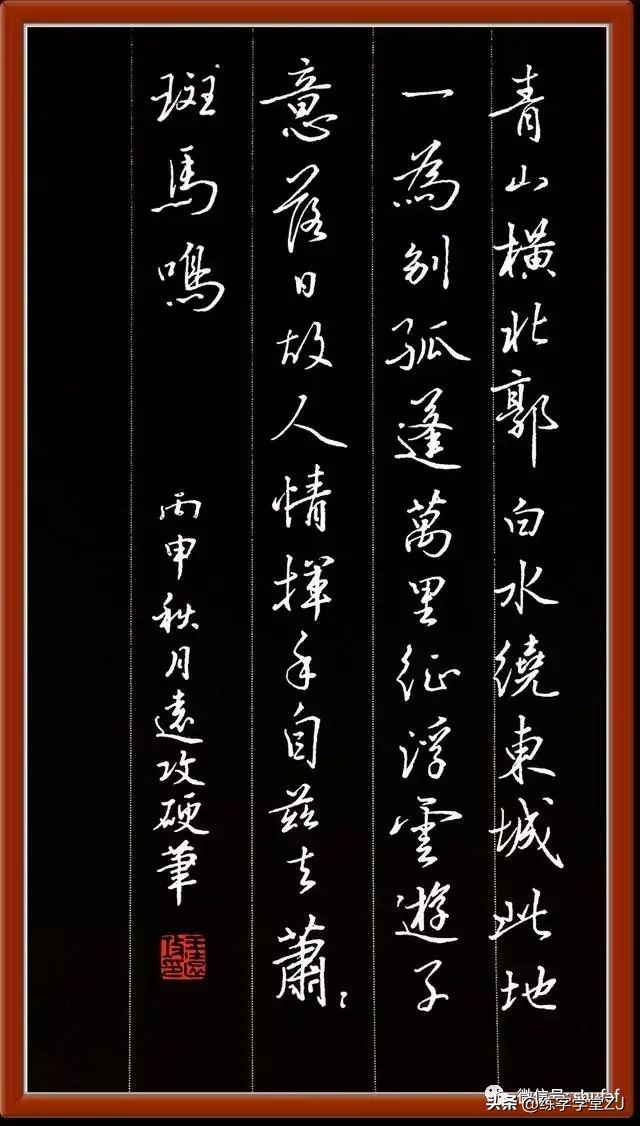 青山橫北郭白水繞東城此地
一為别孤蓬萬里征浮雲遊子
意落日故人情揮手自兹去蕭〻
斑馬鳴
丙申秋月遠攻硬筆
头条@练字学堂ZJ